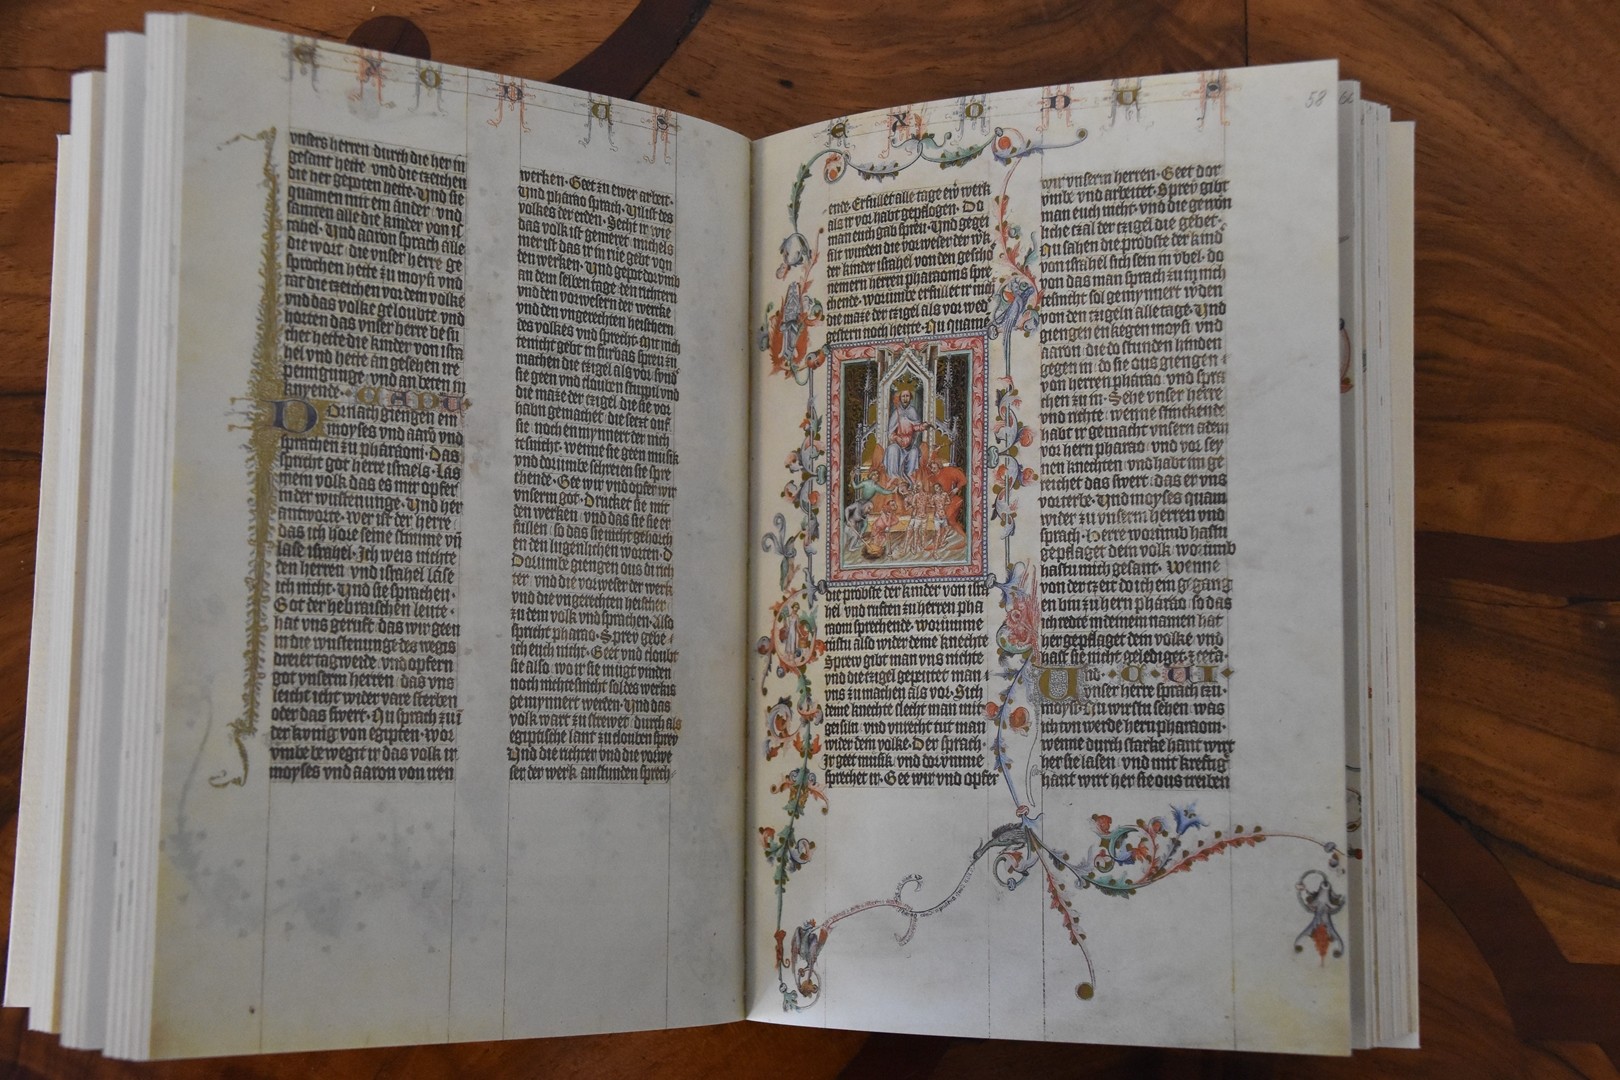 E X O D U S
vnsers herren durch die her in
gesant hette vnd die tzeichen
die her gepoten hette. Vnd sie
quamen mit ein ander vnd
samten alle die kinder von is
rahel. Vnd aaron sprach alle
die wort die vnser herre ge
sprochen hette zu moysi vnd
tat die tzeichen vor dem volke
vnd das volke geloubte vnd
horten das vnser herre besu
chet hette die kinder von isra
hel vnd hette an gesehen ire
peinigunge vnd an beten in
knyende
Dornach giengen ein
moyses vnd aaron vnd
sprachen zu pharaoni. Das
spricht got herre israels. Las
mein volk das es mir opfer
in der wustenunge. Vnd her
antworte. wer ist der herre
das ich hore seine stimme vn
lase israhel. Ich weis nichte
den herren vnd israhel lase
ich nicht. Vnd sie sprachen.
Got der hebraischen leute.
hat vns geruft das wir geen
in die wustenunge des weges
dreier tagweide vnd opfern
got vnserm herren das vns
leicht icht wider vare sterben
oder das swert. Zu sprach zu i
der konig von egipten. wor
vmbe beweget ir das volk ir
moyses vnd aaron von iren
werken. Geet zu ewer arbeit.
Vnd pharao sprach. Vil ist des
volkes der erden. Secht ir wie
das volk ist gemeret michels
mer ist das ir in rue gebt von
den werken. Vnd gepot dorvmb
an dem selben tage den richtern
vnd den vorwesern der werke
vnd den vngerechten heischern
des volkes vnd sprecht. Mit nich
tenicht gebt in furbas spreu zu
machen die tzigel als vor sund
sie geen vnd clouben stuppil vnd
die maze der tzigel die sie vor
habn gemachet die setzt ouf
sie noch en mynnert der nich
tesnicht. wenne sie geen musik
vnd dorumbe schreien sie spre
chende. Gee wir vnd opfer wir
vnserm got. Drucket sie mit
den werken vnd das sie sie er
fullen so das sie nicht gehorch
en den lugenlichen worten. d
Dorumbe giengen ous di rich
ter vnd die vorweser der werk
vnd die vngerechten heischer
zu dem volk vnd sprachen. Also
spricht pharao. Sprew gebe
ich euch nicht. Geet vnd cloubt
sie also wo ir sie mugt vinden
noch mehtesnicht sol des werkis
gemynnert werden. Vnd das
volk wart zu strewet durch als
egiptische lant zu clouben sprew
Vnd die richter vnd die vorwe
ser der werk anstunden sprech
E X O D U S
58
ende. Erfullet alle tage ew werk
als ir vor habt gepflogen. Do
man euch gab spreu. Vnd gegei
slt wurden die vorweser der wk
der kinder israhel von den gescho
nemern herren pharaonis spre
chende. worumbe erfullet ir nich
die maze der tzigel als vor wed
gestern noch heute. Zu quame
die probste der kinder von isra
hel vnd ruften zu herren pha
raoni sprechende. worumme
tustu also wider deine knechte
Sprew gibt man vns nichte
vnd die tzigel gepeutet man
vns zu machen als vor. Sich
deine knechte slecht man mit
geisiln vnd vnrecht tut man
wider dem volke. Der sprach.
Ir geet musik vnd dorumme
sprechet ir. Gee wir vnd opfer
wir vnserm herren. Geet dor
vmbe vnd arbeitet. Sprew gibt
man euch nicht. vnd die gewon
liche tzal der tzigel die gebet.
Zu sahen die probste der kind
von israhel sich sein in vbel. do
von das man sprach zu in nich
tesnicht sol gemynnert werden
von den tzigeln alle tage. Vnd
giengen enkegen moysi vnd
aaron. die do stunden hinden
gegen in. do sie ous giengen
von herren pharao vnd spra
chen zu in. Sehe vnser herre
vnd richte. wenne stinckende
habt ir gemacht vnsern adem
vor hern pharao vnd vor sey
nen knechten vnd habt im ge
reichet das swert das er vns
vorterbe. Vnd moyses quam
wider zu vnserm herren vnd
sprach. Herre worumb hastu
gepflaget dem volk worumb
hastu mich gesant. wenne
von der tzeit do ich ein gegang
en bin zu hern pharao so das
ich redte in deinem namen hat
her gepflaget dem volke vnd
hast sie nicht geledigt
Vnd
vnser herre sprach tzu.
moysi. Zu wirstu sehen was
ich tun werde hern pharaoni.
wenne durch starke hant wirt
her sie lasen vnd mit kreftig
hant wirt her sie ous treiben